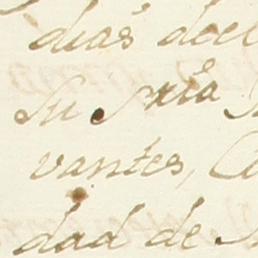 dias del
Su Sría
vantes,
dad de